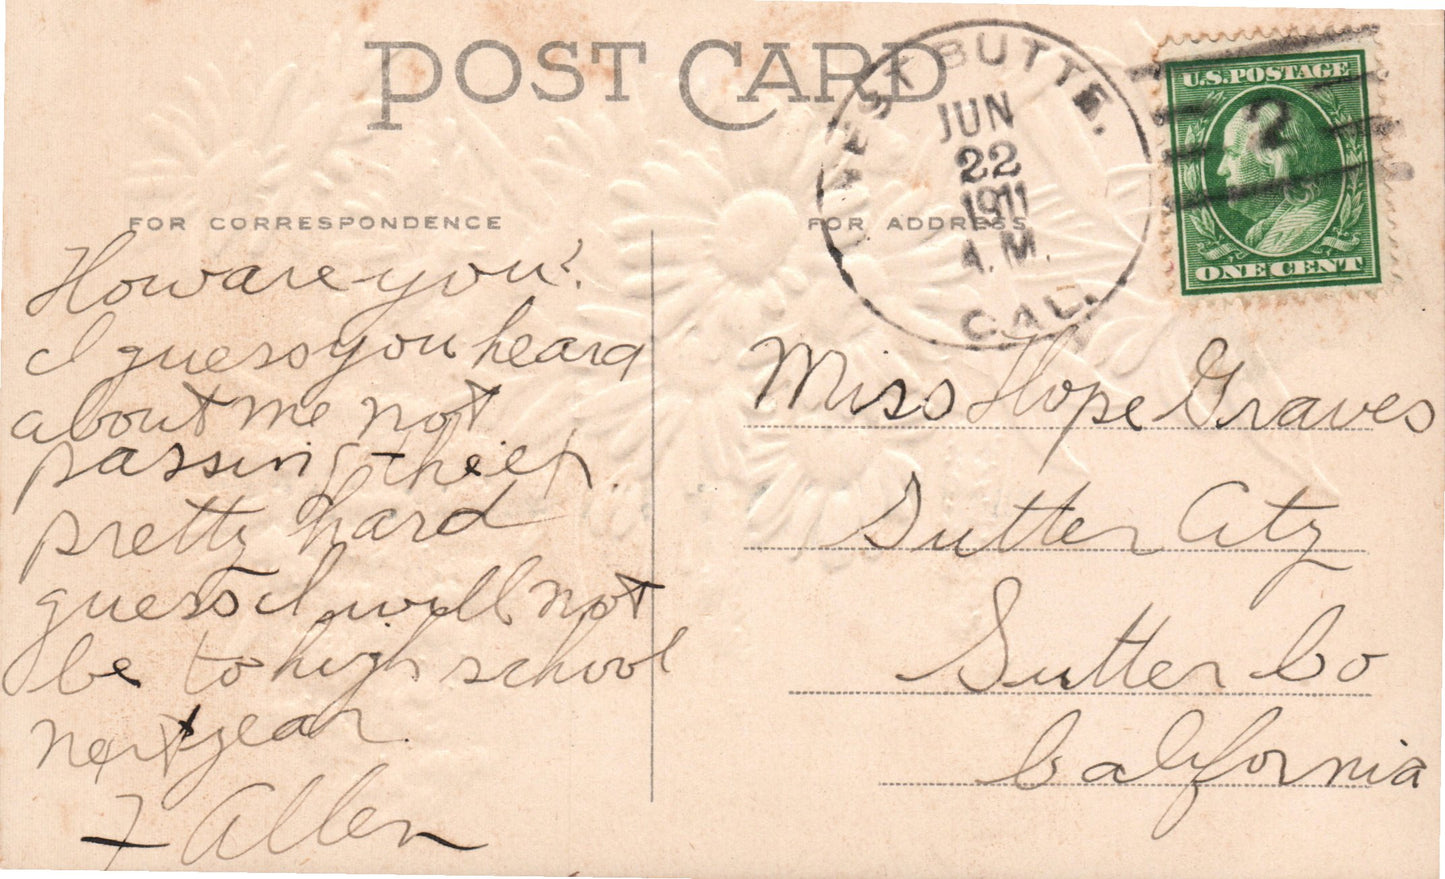 POST CARD
WEST BUTTE,
CAL.
JUN
22
1911
A.M.
U.S. POSTAGE
2
ONE CENT
FOR CORRESPONDENCE
FOR ADDRESS
How are you?
I guess you heard
about me not
passing
pretty hard
guess I will not
be to high school
next year.
Allen
Miss Hope Graves
Sutter City
Sutter Co
California